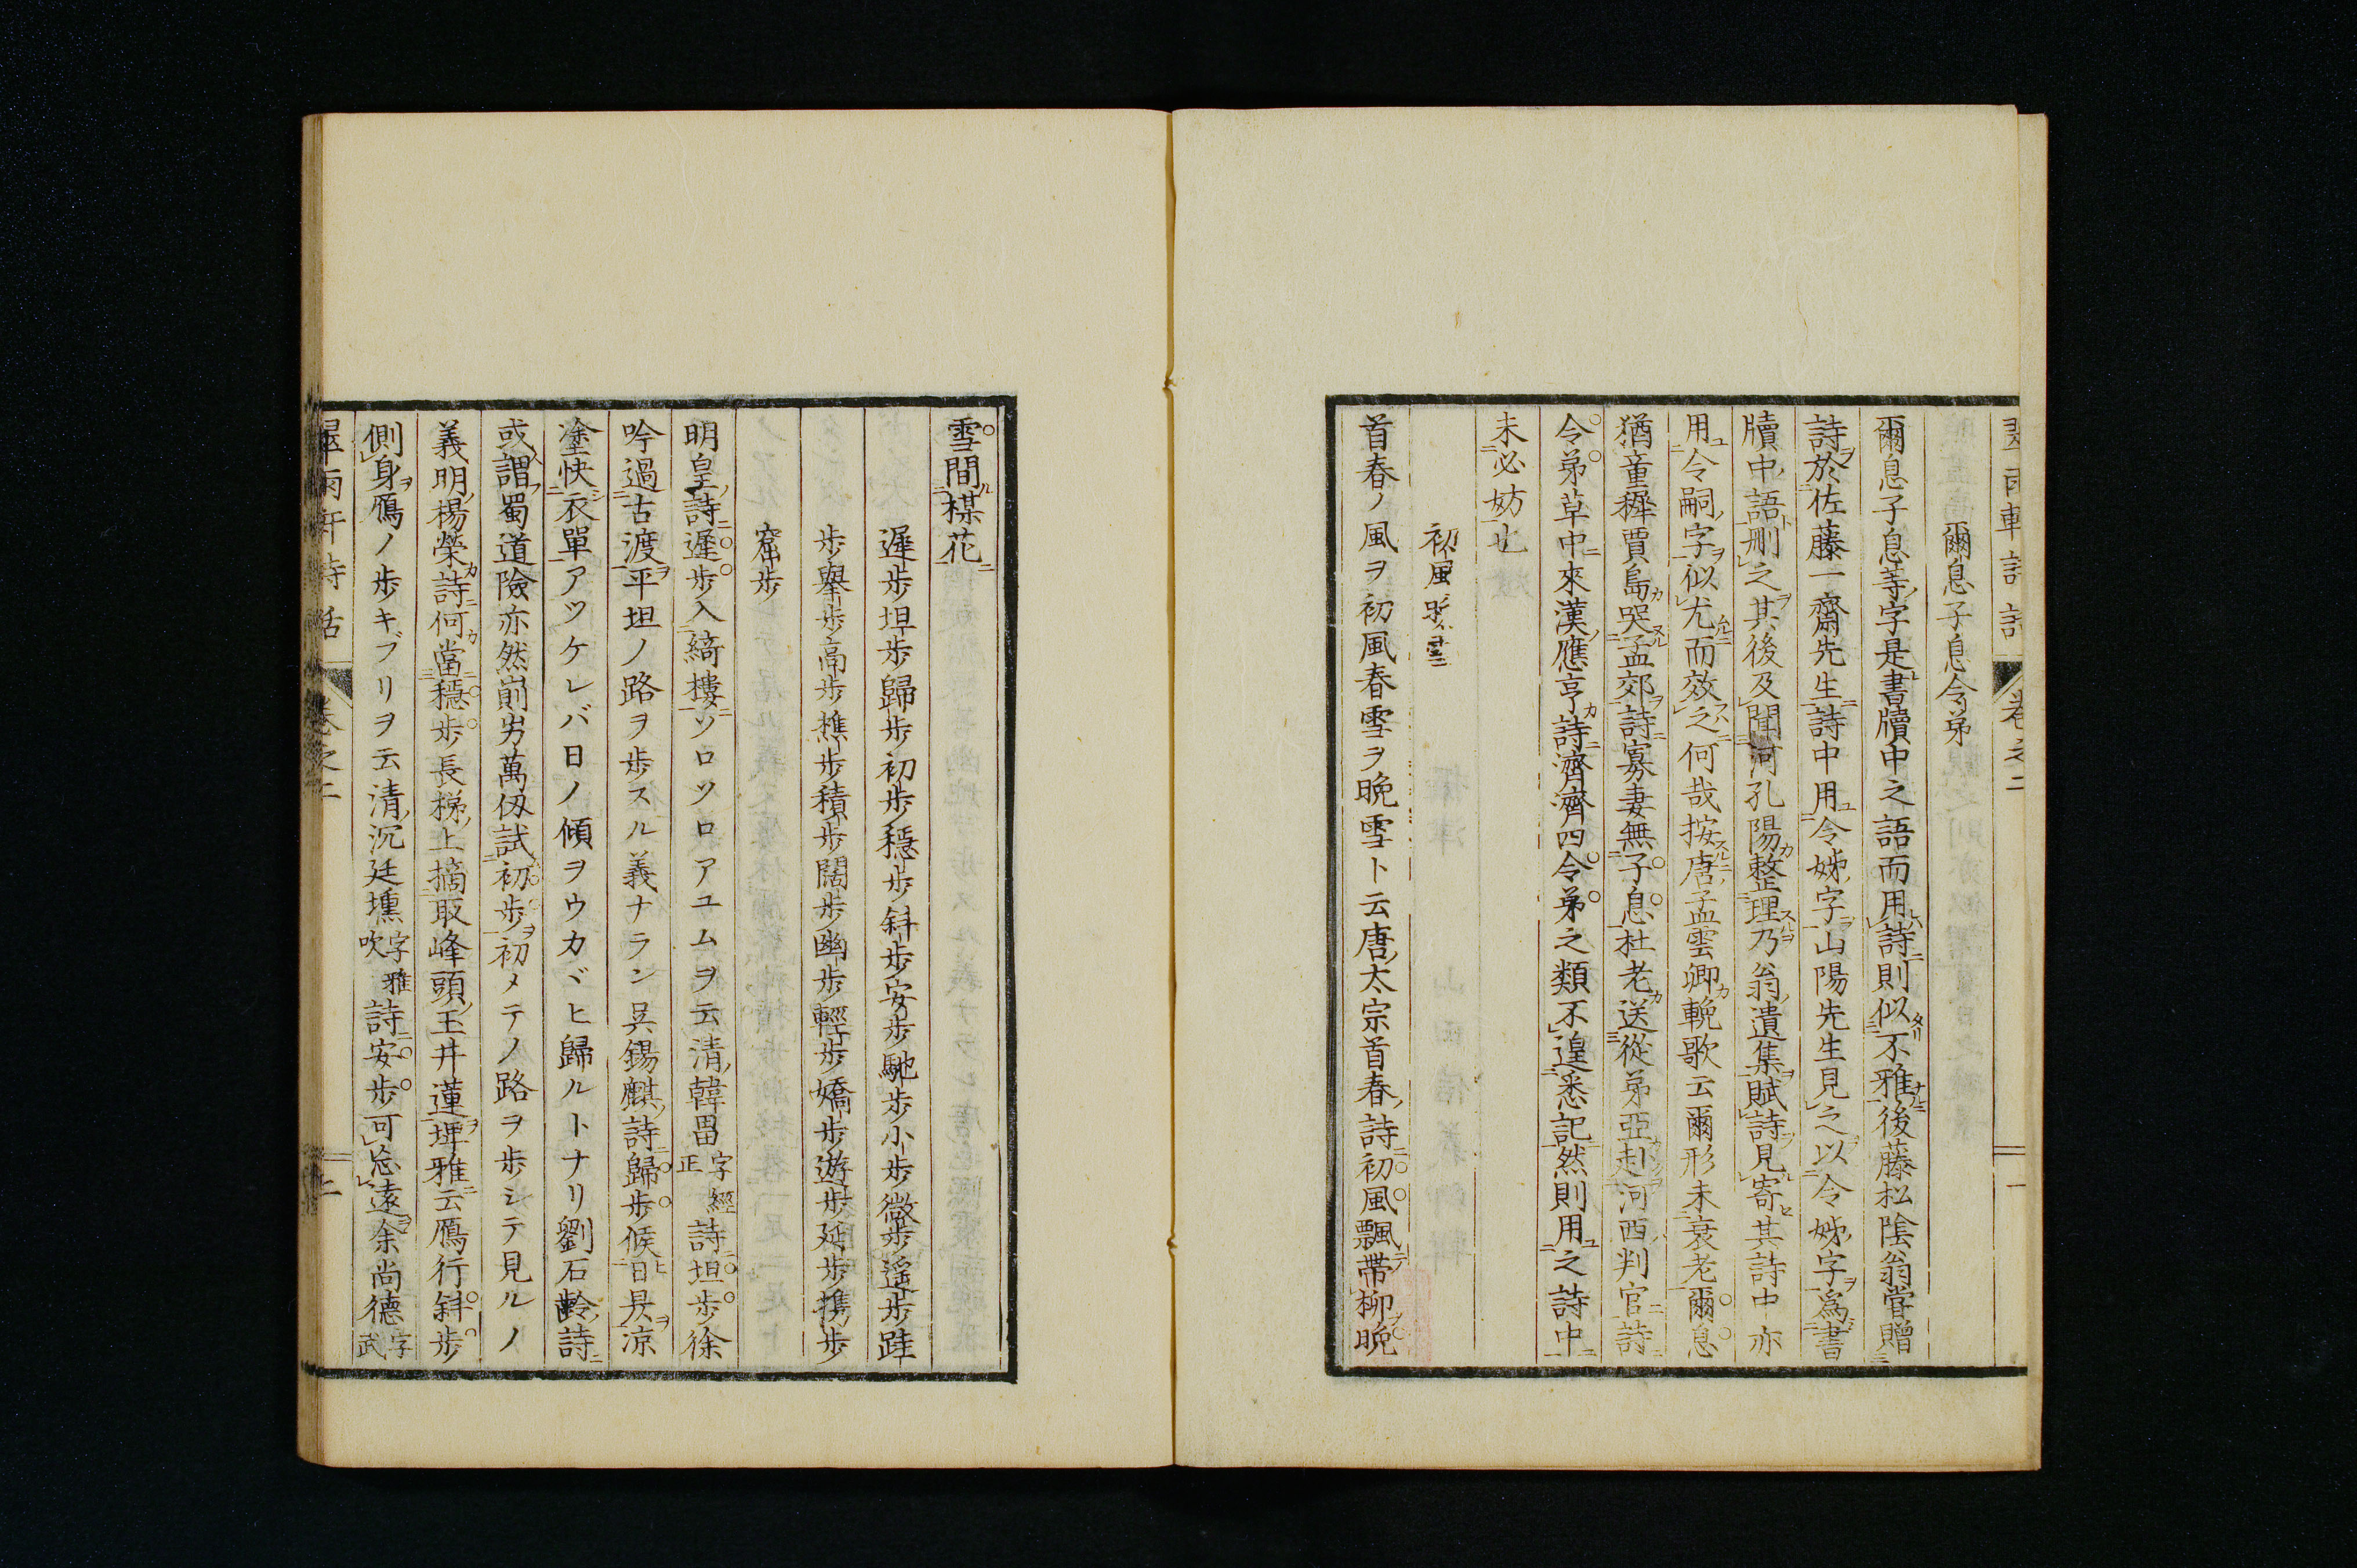 翠雨軒詩話 卷之二 一
爾息子息令弟
爾息子息等ノ字是書牘中之語而用詩則似不雅後藤松陰翁嘗贈
詩於佐藤一齋先生詩中用令姊字山陽先生見之以令姊字爲書
牘中語删之其後及聞河孔陽整理乃翁遺集賦詩見寄其詩中亦
用令嗣字似尤而效之何哉按唐孟雲卿輓歌云爾形未衰老爾息
猶童穉賈島哭孟郊詩寡妻無子息杜老送從弟亞赴河西判官詩
令弟草中來漢應亨詩濟濟四令弟之類不遑悉記然則用之詩中
未必妨也
初風
首春ノ風ヲ初風春雪ヲ晩雪ト云唐太宗首春ノ詩ニ初風飄帶柳晩
雪間楳花
遲歩坦歩歸歩初歩穩歩斜歩安歩馳歩小歩微歩遥歩跬
歩擧歩高歩推歩積歩闊歩幽歩輕歩嬌歩遊歩延歩携歩
窘歩
明皇ノ詩ニ遲歩入綺樓ソロソロアユムヲ云清ノ韓畕字經正詩ニ坦歩徐
吟過古渡平坦ノ路ヲ歩スル義ナラン吳錫麒ノ詩ニ歸歩候日昃涼
塗快衣單アツケレバ日ノ傾ヲウカヾヒ歸ルトナリ劉石齡ノ詩ニ
或謂蜀道險亦然崱屴萬仭試初歩初メテノ路ヲ歩シテ見ルノ
義明ノ楊榮詩ニ何當穩歩長梯上摘取峰頭玉井蓮埤雅ニ云鴈行斜歩
側身鴈ノ歩キブリヲ云清ノ沉廷壎字雅吹詩ニ安歩可忘遠余尚德字武
翠雨軒詩話 卷之二